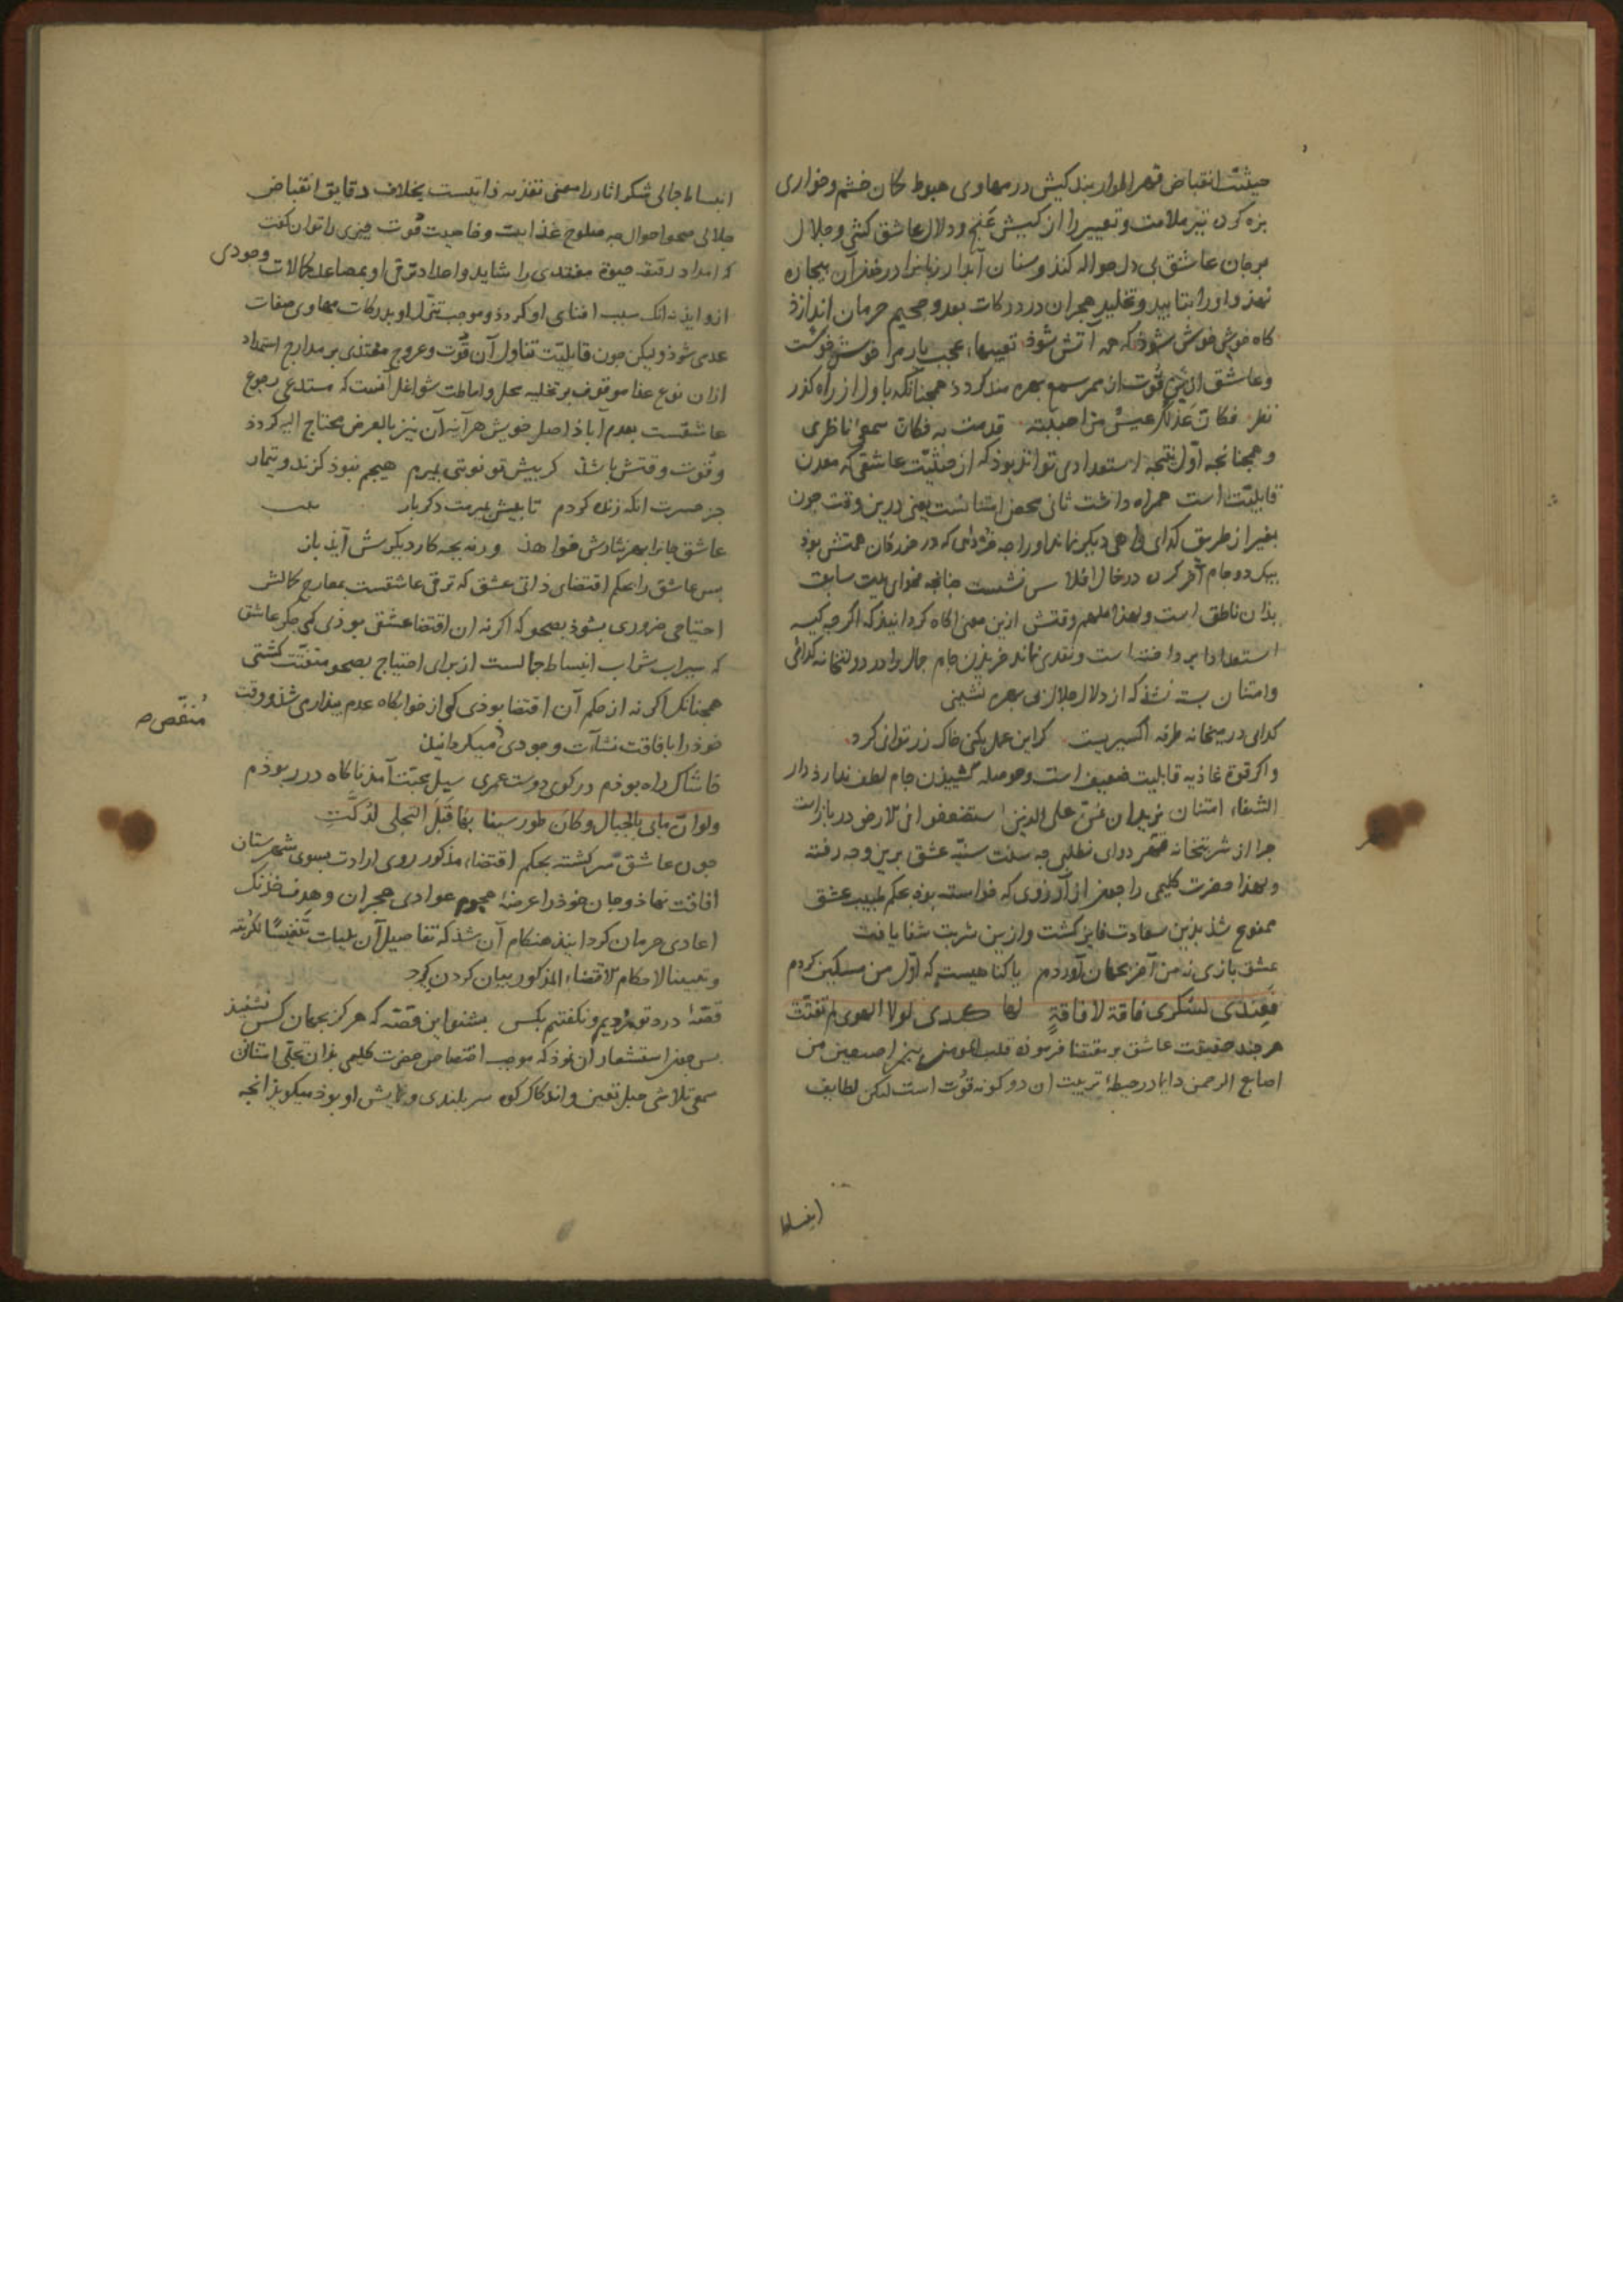 حیثیت انقباض قهر اطوار بندکیش در مهاوی هبوط کان خشم و خواری
بزه کردن تیر ملامت و تعییر را از کیش غنج و دلال عاشق کشی و جلال
بر جان عاشق بی دل حواله کند و سنان آبدار زبانرا در خذر آن بیچاره
نهذ و او را بتابید و تخلید هجران در درکات بعد و جحیم حرمان اندازذ
کاه خوشی خوش شوذ که همه آتش شوذ تعبیها عجب یار مرا خوش خوست
و عاشق این قوت از ممر سمع بهره مند کردد همچنانکه باول از راه کذر
نظر فکان
و همچنانچه اول نتیجه استعدادی تواند بوذ که از حیثیت عاشقی که معدن
قابلیت است همراه داشت ثانی محض امتنانست یعنی درین وقت چون
بغیر از طریق کدای راهی دیکر نماند او را چه خرده که در خرد کان همتش بوذ
بیک دو جام آخر کردن در حال افلاس نشست چنانچه فحوای بیت سابق
بذان ناطق است و بعد ا ملهم وقتش ازین معنی اکاه کردانیذ که اکر چه کیسه
استعداد پرداخته است و نقدی نماند خریدن جام جمال را در دولتخانه کدائی
و امتنان بسته نشذ که از دلال جلال بی بهره نشینی
کدای در میخانه طرفه اکسیریست کر این عمل بکنی خاک زر توانی کرد
و اکر قوة غاذیه قابلیت ضعیف است و حوصله کشیدن جام لطف ندارذ دار
الشفاء امتنان نرید ان نمن علی الذین استضعفوا فی الارض در باز است
چرا از شربتخانه قهر دوای نطلبی چه سنت سنیه عشق برین وجه رفته
و لهذا حضرت کلیمی را چون از آرزوی که خواسته بوذ بحکم طبیب عشق
ممنوع شذ بذین سعادت فایز کشت و ازین شربت شفا یافت
عشق بازی نه من آخر بجهان آوردم یا کناهیست که اول من مسکین کردم
فعندی لسکری فاقة لافاقة لها کبدی لولا الهوی لم تفتت
هر چند حقیقت عاشق بر مقتضا فرموده قلب المومن بین اصبعین من
اصابع الرحمن دایما در حیطه تربیت ان دو کونه قوت است لیکن لطایف
انبساط
انبساط جمالی شکر اثار را معنی تغذیه ذاتیست بخلاف دقایق انقباض
جلالی صحو احوال چه صلوح غذایت و خاصیت قوت چیزی را توان کفت
که امداد رقیقه حیوة مغتذی را شاید و اعداد ترقی او بمصاعد کمالات وجودی
ازو ایذ نه انک سبب افنای او کردد و موجب تنزل او بدرکات مهاوی صفات
عدمی شوذ و لیکن چون قابلیت تناول آن قوت و عروج مغتذی بر مدارج استمداد
ازان نوع غذا موقوف بر تخلیه محل و اماطت شواغل آنست که مستدعی رجوع
عاشقست بعدم آباذ اصل خویش هر آینه آن نیز بالعرض محتاج الیه کردد
و قوت وقتش باشذ کر بیش تو نوبتی بمیرم هیچم نبوذ کزند و تیمار
جز حسرت انکه زنده کردم تا پیش بمیرمت دکر بار
عاشق جانرا بهر نثارش خواهذ ورنه بچه کار دیکرش آیذ باز
بس عاشق را بحکم اقتضای ذاتی عشق که ترقی عاشقست بمعارج کمالش
احتیاجی ضروری بشوذ بصحو که اکر نه ان اقتضا عشقی بوذی کی جکر عاشق
که سیراب شراب انبساط جمالست از برای احتیاج بصحو متفتت کشتی
همچنانک اکر نه از حکم آن اقتضا بوذی کی از خوابکاه عدم بیداری شذ و وقت
خوذ را بافاقت نشآت وجودی میکردانیذ
منغص صح
خاشاک راه بوذم در کوی دوست عمری سیل محبت آمذ ناکاه در ربوذم
ولو ان مابی بالجبال وکان طور سینا بها قبل التجلی لدکت
چون عاشق سر کشته بحکم اقتضاء مذکور روی ارادت بسوی شهرستان
افاقت نهاذ و جان خوذ را عرضه هجوم عوادی هجران و هدف خذنک
اعادی حرمان کردانیذ هنکام آن شذ که تفاصیل آن بلیات تنفیسا لکربته
و تبیینا لاحکام الاقتضاء المذکور بیان کردن کیرد
قصه درد تو مردیم و نکفتیم بکس بشنو این قصه که هرکز بجهان کس نشنیذ
بس چون استشعار ان نموذ که موجب اختصاص حضرت کلیمی بذان تجلی استان
سمعی تلاشی جبل تعین و اندکاک کوه سربلندی و نمایش او بوذ میکویذ انچه